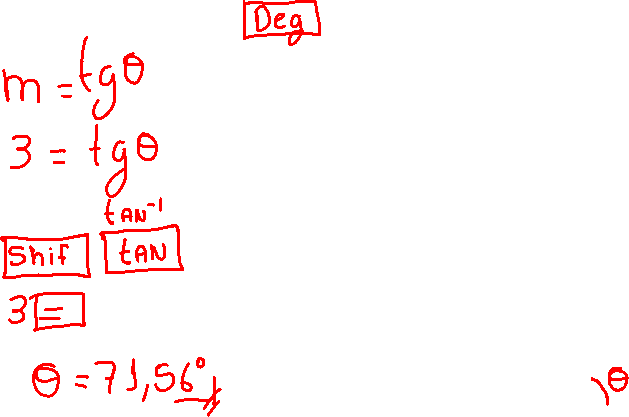 Deg
m = tgθ
3 = tgθ
tAN⁻¹
Shif tAN
3 =
θ = 71,56°
θ